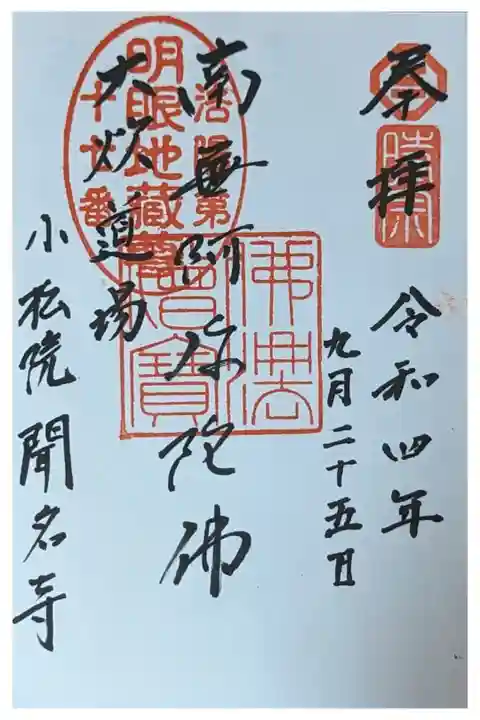 奉拝
時宗
令和四年
九月二十五日
南無阿弥陀佛
佛法
僧寶
洛陽第
明眼地蔵
番
大炊道場
小松院聞名寺